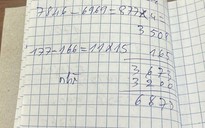 7846-6969=877×4
3508
177-166=11×15
165
3673
3200
6873